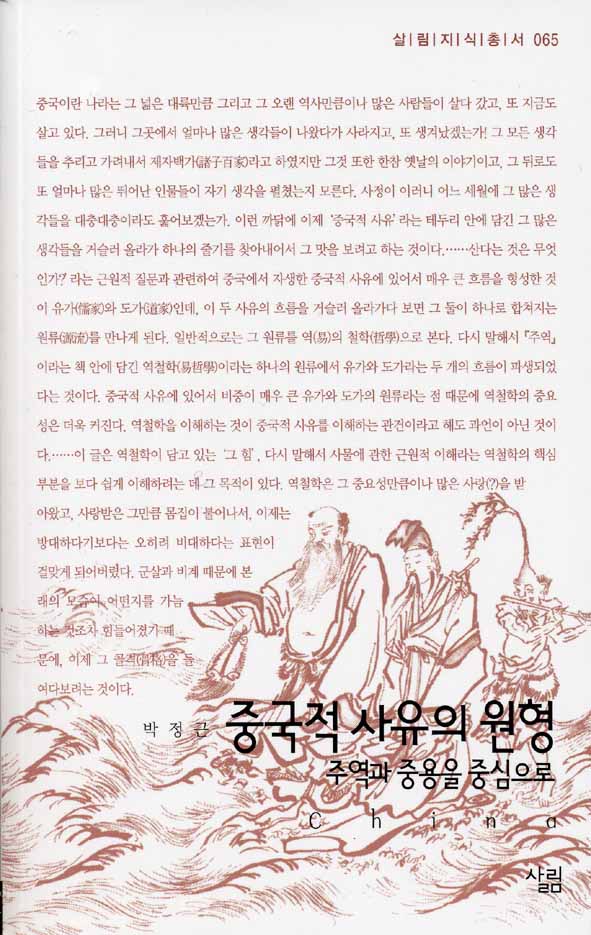 살|림|지|식|총|서 065
중국이란 나라는 그 넓은 대륙만큼 그리고 그 오랜 역사만큼이나 많은 사람들이 살다 갔고, 또 지금도
살고 있다. 그러니 그곳에서 얼마나 많은 생각들이 나왔다가 사라지고, 또 생겨났겠는가! 그 모든 생각
들을 추리고 가려내서 제자백가(諸子百家)라고 하였지만 그것 또한 한참 옛날의 이야기이고, 그 뒤로도
또 얼마나 많은 뛰어난 인물들이 자기 생각을 펼쳤는지 모른다. 사정이 이러니 어느 세월에 그 많은 생
각들을 대충대충이라도 훑어보겠는가. 이런 까닭에 이제 '중국적 사유'라는 테두리 안에 담긴 그 많은
생각들을 거슬러 올라가 하나의 줄기를 찾아내어서 그 맛을 보려고 하는 것이다.……산다는 것은 무엇
인가? 라는 근원적 질문과 관련하여 중국에서 자생한 중국적 사유에 있어서 매우 큰 흐름을 형성한 것
이 유가(儒家)와 도가(道家)인데, 이 두 사유의 흐름을 거슬러 올라가다 보면 그 둘이 하나로 합쳐지는
원류(源流)를 만나게 된다. 일반적으로는 그 원류를 역(易)의 철학(哲學)으로 본다. 다시 말해서 『주역』
이라는 책 안에 담긴 역철학(易哲學)이라는 하나의 원류에서 유가와 도가라는 두 개의 흐름이 파생되었
다는 것이다. 중국적 사유에 있어서 비중이 매우 큰 유가와 도가의 원류라는 점 때문에 역철학의 중요
성은 더욱 커진다. 역철학을 이해하는 것이 중국적 사유를 이해하는 관건이라고 해도 과언이 아닌 것이
다.……이 글은 역철학이 담고 있는 '그 힘', 다시 말해서 사물에 관한 근원적 이해라는 역철학의 핵심
부분을 보다 쉽게 이해하려는 데 그 목적이 있다. 역철학은 그 중요성만큼이나 많은 사랑(?)을 받
아왔고, 사랑받은 그만큼 몸집이 불어나서, 이제는
방대하다기보다는 오히려 비대하다는 표현이
걸맞게 되어버렸다. 군살과 비계 때문에 본
래의 모습이 어떤지를 가늠
하는 것조차 힘들어졌기 때
문에, 이제 그 골격(骨格)을 들
여다보려는 것이다.
박정근 중국적 사유의 원형
주역과 중용을 중심으로
China
살림